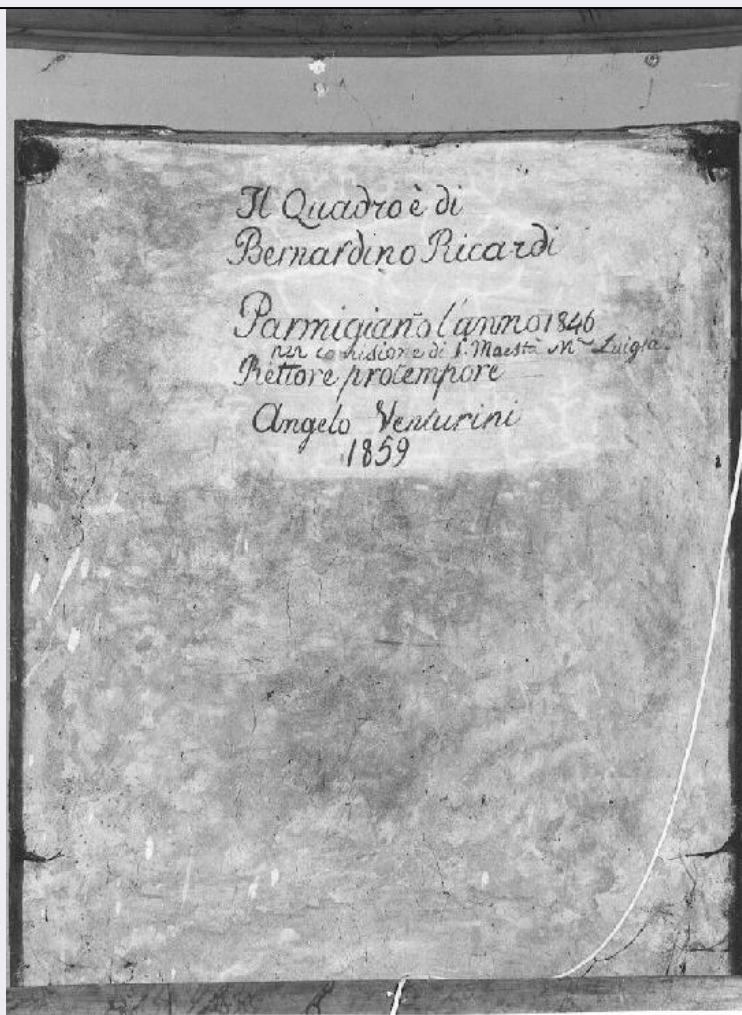 Il Quadro è di
Bernardino Ricardi
Parmigiano l'anno 1846
per comisione di S. Maestà Mᵃ Luigia
Rettore protempore
Angelo Venturini
1859